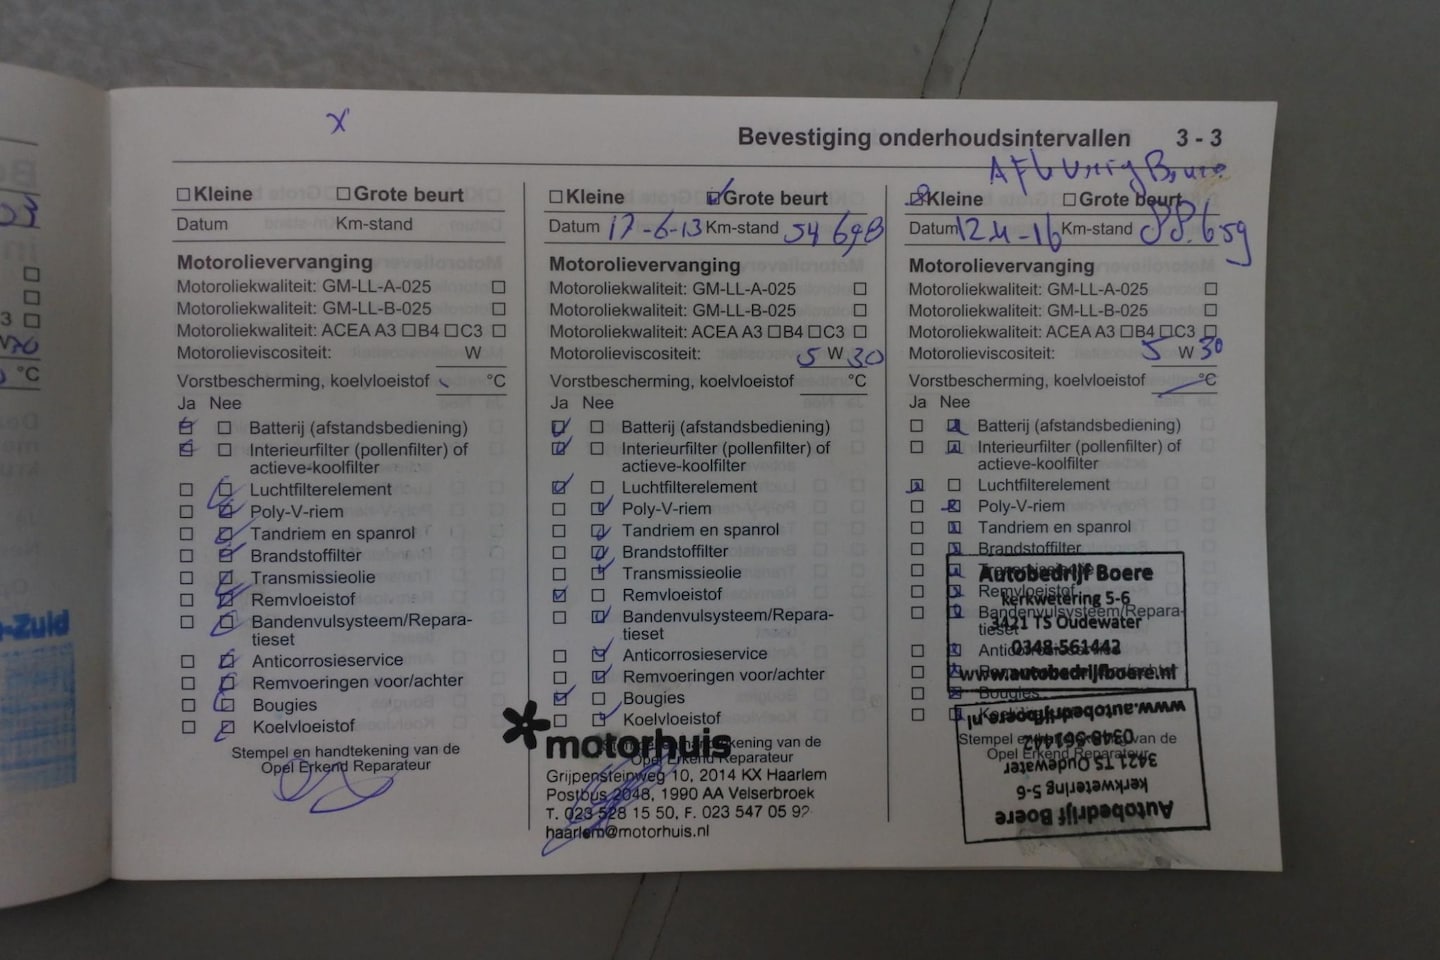 x
Bevestiging onderhoudsintervallen 3 - 3
Kleine Grote beurt
Datum Km-stand
Motorolievervanging
Motoroliekwaliteit: GM-LL-A-025
Motoroliekwaliteit: GM-LL-B-025
Motoroliekwaliteit: ACEA A3 B4 C3
Motorolieviscositeit: W
Vorstbescherming, koelvloeistof °C
Ja Nee
Batterij (afstandsbediening)
Interieurfilter (pollenfilter) of
actieve-koolfilter
Luchtfilterelement
Poly-V-riem
Tandriem en spanrol
Brandstoffilter
Transmissieolie
Remvloeistof
Bandenvulsysteem/Repara-
tieset
Anticorrosieservice
Remvoeringen voor/achter
Bougies
Koelvloeistof
Stempel en handtekening van de
Opel Erkend Reparateur
Kleine Grote beurt
Datum 17-6-13 Km-stand 54 698
Motorolievervanging
Motoroliekwaliteit: GM-LL-A-025
Motoroliekwaliteit: GM-LL-B-025
Motoroliekwaliteit: ACEA A3 B4 C3
Motorolieviscositeit: 5 W 30
Vorstbescherming, koelvloeistof °C
Ja Nee
Batterij (afstandsbediening)
Interieurfilter (pollenfilter) of
actieve-koolfilter
Luchtfilterelement
Poly-V-riem
Tandriem en spanrol
Brandstoffilter
Transmissieolie
Remvloeistof
Bandenvulsysteem/Repara-
tieset
Anticorrosieservice
Remvoeringen voor/achter
Bougies
Koelvloeistof
Stempel en handtekening van de
Opel Erkend Reparateur
motorhuis
Grijpensteinweg 10, 2014 KX Haarlem
Postbus 2048, 1990 AA Velserbroek
T. 023 528 15 50, F. 023 547 05 92
haarlem@motorhuis.nl
Kleine Grote beurt
Datum Km-stand 88.659
Motorolievervanging
Motoroliekwaliteit: GM-LL-A-025
Motoroliekwaliteit: GM-LL-B-025
Motoroliekwaliteit: ACEA A3 B4 C3
Motorolieviscositeit: 5 W 30
Vorstbescherming, koelvloeistof °C
Ja Nee
Batterij (afstandsbediening)
Interieurfilter (pollenfilter) of
actieve-koolfilter
Luchtfilterelement
Poly-V-riem
Tandriem en spanrol
Brandstoffilter
Transmissieolie
Remvloeistof
Bandenvulsysteem/Repara-
tieset
Anticorrosieservice
Remvoeringen voor/achter
Bougies
Koelvloeistof
Stempel en handtekening van de
Opel Erkend Reparateur
Autobedrijf Boere
kerkwetering 5-6
3421 TS Oudewater
0348-561442
www.autobedrijfboere.nl
Autobedrijf Boere
kerkwetering 5-6
3421 TS Oudewater
0348-561442
www.autobedrijfboere.nl
°C
-Zuid